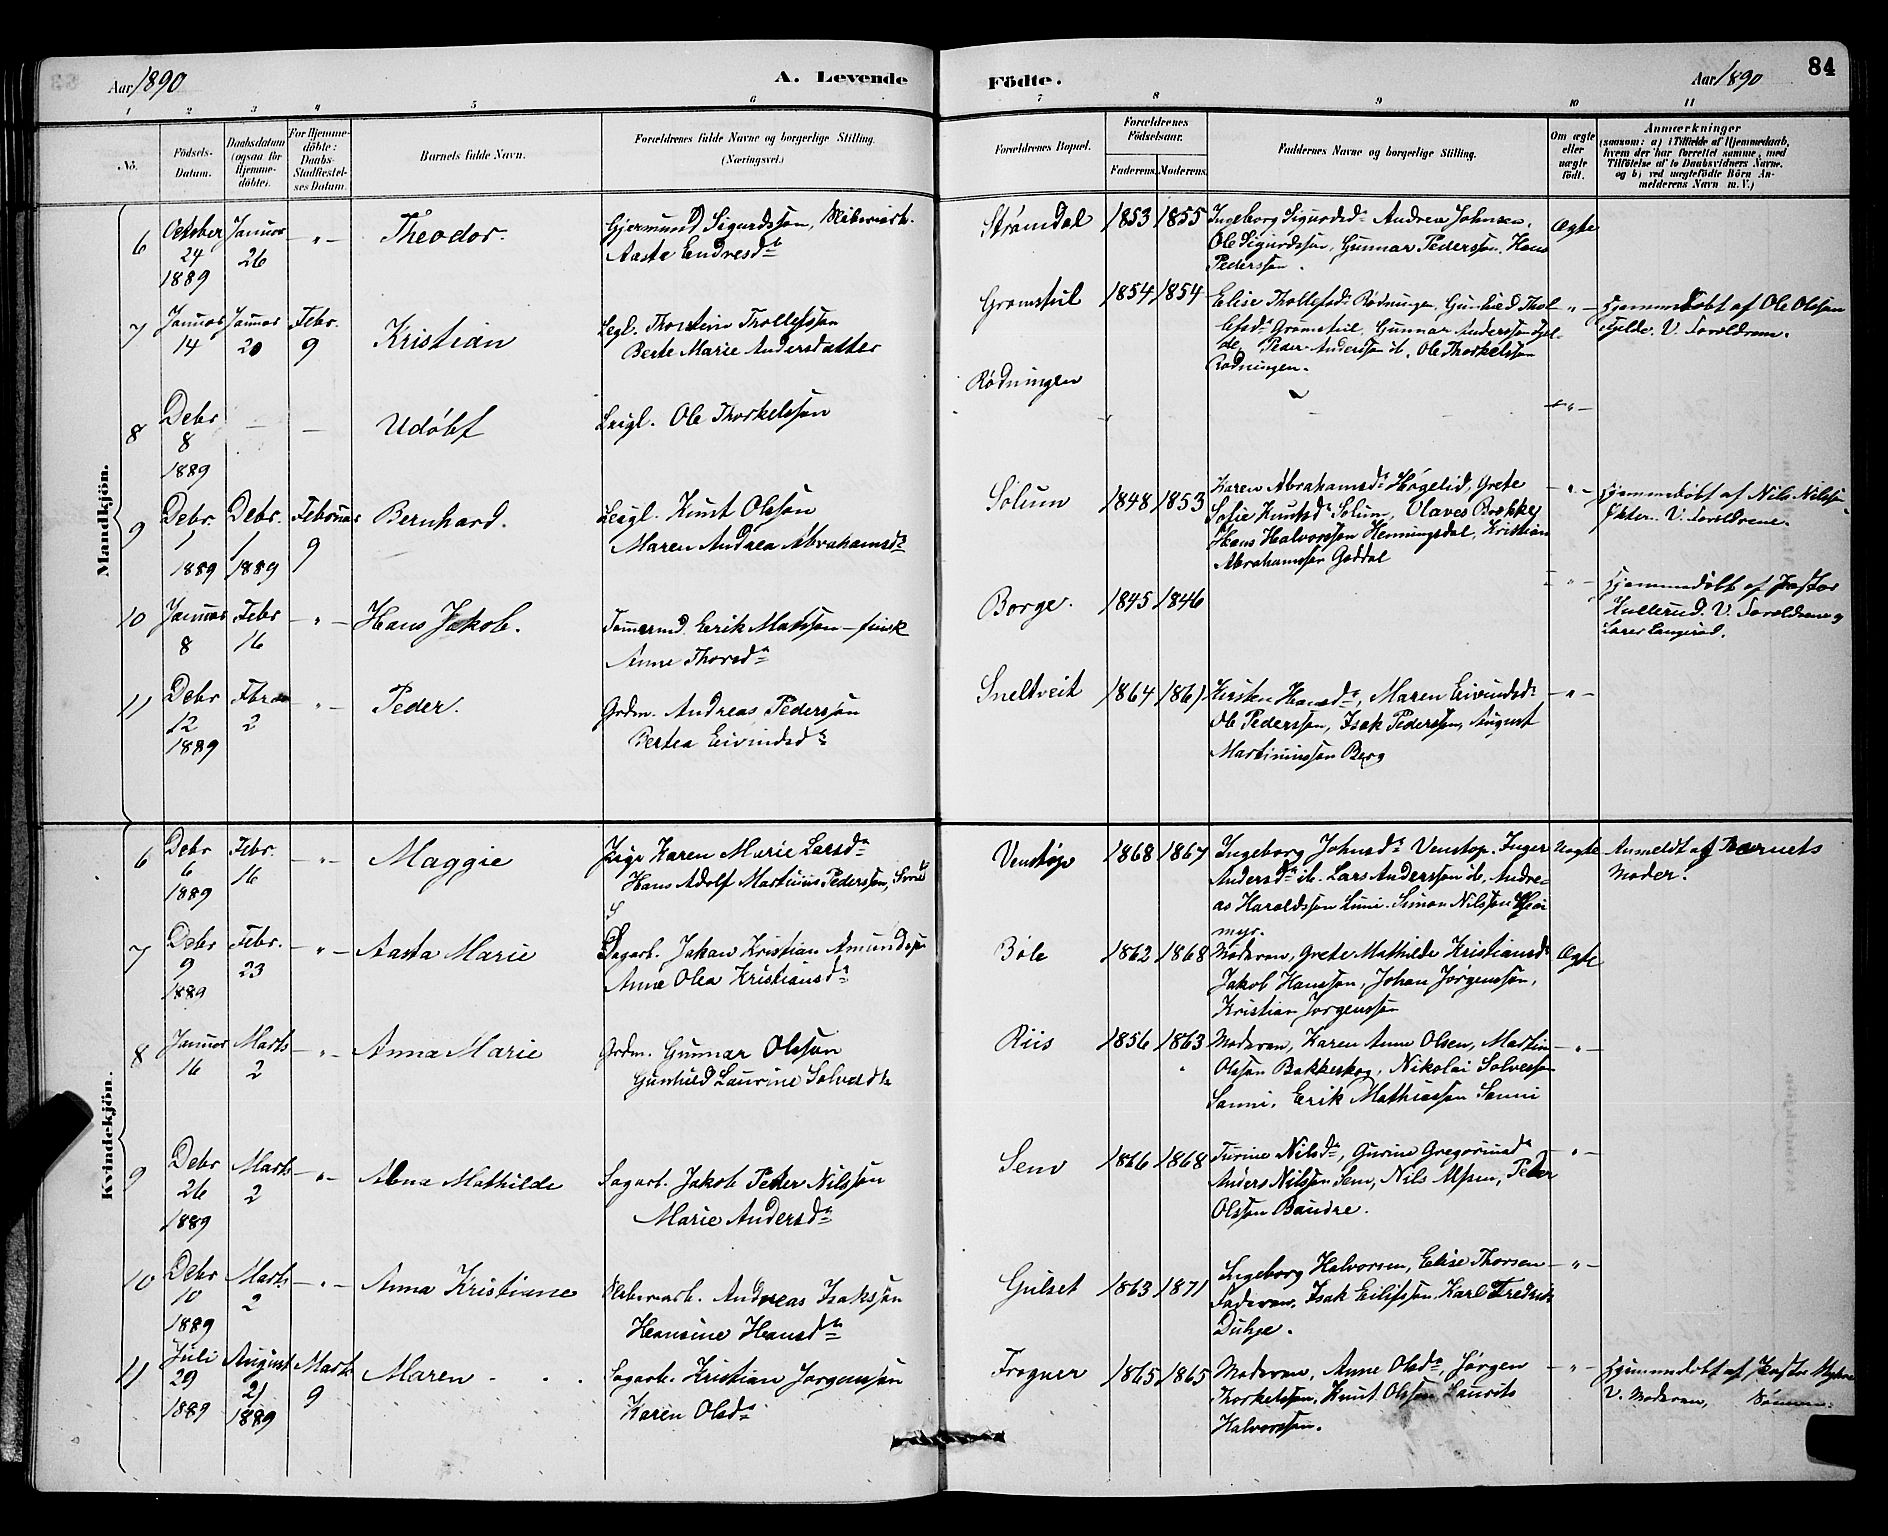 Aar 1890
A. Levende
Födte.
Aar 1890
84
1 2 3 4 5 6 7 8 9 10 11
No.
Födsels-
Datum.
Daabsdatum
(ogsaa for
Hjemme-
döbte).
For Hjemme-
döbte:
Daabs-
Stadfæstel-
ses Datum.
Barnets fulde Navn.
Forældrenes fulde Navne og borgerlige Stilling.
(Næringsvei.)
Forældrenes Bopæl.
Forældrenes
Födselsaar.
Faderens. Moderens.
Faddernes Navne og borgerlige Stilling.
Om ægte
eller
uægte
födt.
Anmærkninger
(saasom: a) i Tilfælde af Hjemmedaab,
hvem der har forrettet samme, med
Tilföielse af to Daabsvidners Navne,
og b) ved uægtefödte Börn An-
melderens Navn m. V.)
Mandkjön.
6 October 24 1889 Januar 26 - " - Theodor.
Gjermund Sigurdssøn,
Aaste Endresdr
Strømdal 1853 1855
Ingeborg Sigurdsdr Andrea Johnsen,
Ole Sigurdssøn, Gunnar Pederssøn, Hans
Pederssøn.
Ægte
7 Januar 14 Januar 20 Febr. 9 Kristian
Leigl. Thorstein Trollefssøn
Berte Marie Andersdatter
Gromstul 1854 1854
Elise Thollefsdr Rødningen, Gunhild Thol-
lefsdr Gromstul, Gunnar Anderssøn Fjel-
de, Peder Anderssøn ib., Ole Thorkelssøn
Rødningen.
- " -
Hjemmedøbt af Ole Olssøn
Fjelde. V. Forældrene.
8 Debr 8 1889 - - Udøbt
Leigl. Ole Thorkelssøn
Rødningen
- " -
9 Debr. 1 1889 Debr. 1 1889 Februar 9 Bernhard.
Leigl. Knut Olssøn
Maren Andrea Abrahamsdr
Solum 1848 1853
Karen Abrahamsdr Høgelid, Grete
Sofie Knutsdr Solum, Olaves Brekke,
Hans Halvorssøn Henningsdal, Kristian
Abrahamssøn Goddal
- " -
Hjemmedøbt af Nils Nilssøn
V. Forældrene.
10 Januar 8 Febr 16 - " - Hans Jakob.
Tømmermd. Erik Matssøn - finsk
Anne Thorsdr
Borge. 1845 1846
- " -
Hjemmedøbt af Pastor
Kullerud. V. Forældrene og
Lærer Langerød.
11 Debr 12 1889 Febr. 2 - " - Peder.
Grdm. Andreas Pederssøn
Bertea Eivindsdr
Sneltveit 1864 1861
Kirsten Hansdr, Maren Eivindsdr
Ole Pederssøn, Isak Pederssøn, August
Martinussøn Berg
- " -
Kvindekjön.
6 Debr 6 1889 Febr. 16 - " - Maggie
Pige Karen Marie Larsdr
Hans Adolf Martinius Pederssøn,
Venstøp 1868 1867
Ingeborg Johnsdr Venstøp, Inger
Andersdr ib. Lars Anderssøn ib, Andre-
as Haraldssøn Limi. Simon Nilssøn
myr.
Uægte
Anmeldt af Barnets
Moder.
7 Debr 9 1889 Febr. 23 - " - Aasta Marie
Dagarb. Johan Kristian Amundssøn
Anne Olea Kristiansdr
Bøle 1862 1868
Moderen, Grete Mathilde Kristiansdr
Jakob Hanssøn, Johan Jørgenssøn,
Kristian Jørgenssøn
Ægte
8 Januar 16 Marts 2 - " - Anna Marie
Grdm. Gunnar Olssøn
Gunhild Laurine Solvesdr
Riis 1856 1863
Moderen, Karen Anne Olsen, Martin
Olssøn Bakkeskog, Nikolai Solvessøn
Sanni, Erik Mathiassøn Sanni
- " -
9 Debr 26 1889 Marts 2 - " - Anna Mathilde
Sagarb. Jakob Peder Nilssøn
Marie Andersdr
Sem 1866 1868
Turine Nilsdr, Gurine Gregoriusdr
Anders Nilssøn Sem, Nils Alfsen, Peder
Olssøn Baudre.
- " -
10 Debr 10 1889 Marts 2 - " - Anna Kristiane
Andreas Isakssøn
Hansine Hansdr
Gulset 1863 1871
Ingeborg Halvorsen, Elise Thorsen
Faderen, Isak Eilifssøn, Karl Fredrik
- " -
11 Juli 29 1889 August 21 1889 Marts 9 Maren
Sagarb. Kristian Jørgenssøn
Karen Olsdr
Frogner 1865 1865
Moderen, Anne Olsdr Jørgen
Thorkelssøn, Knut Olssøn, Laurits
Halvorssøn.
- " -
Hjemmedøbt af Pastor
V. Moderen,